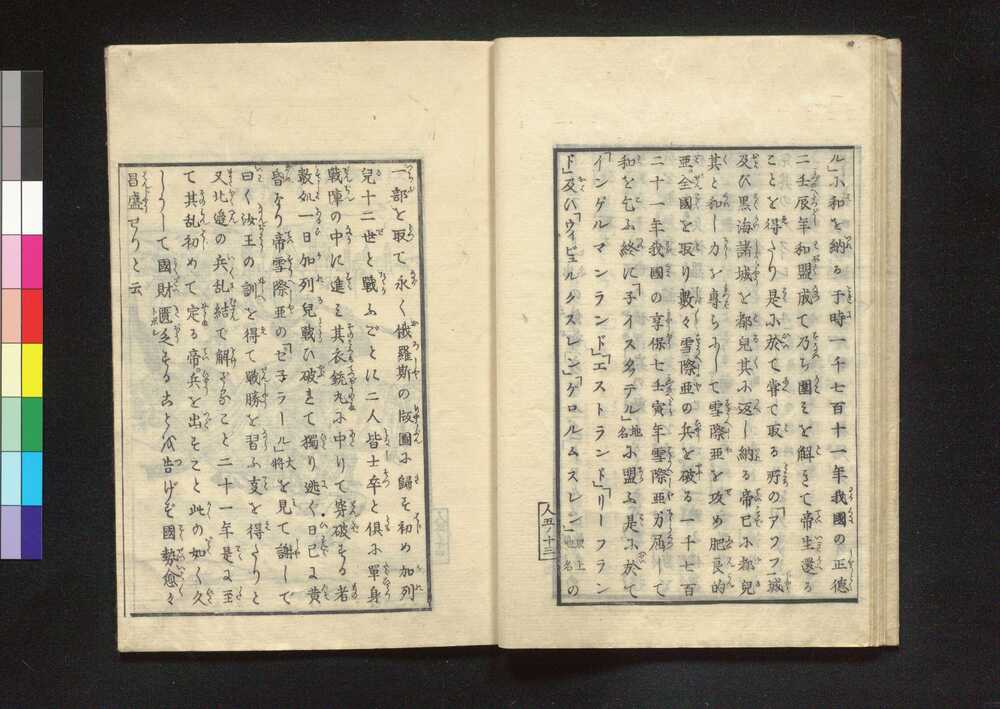 ル」に和を納る于時一千七百十一年我國の正德
二壬辰年和盟成て乃ち圍を解きて帝生還る
ことを得たり是に於て甞て取る所の「アゾフ」城
及び黒海諸城を都兒其に返し納る帝已に都兒
其と和し力を專らにして雪際亞を攻め肥良的
亞全國を取り數々雪際亞の兵を破る一千七百
二十一年我國の享保七壬寅年雪際亞力屈して
和を乞ふ終に「子イスタデル」地名に盟ふ是に於て
「インゲルマンランド」「エストランド」「リーフラン
ド」及び「ウィビュルグスレン」「ゲロルムスレン」已上地名の
人五ノ十三
一部を取て永く俄羅斯の版圖に歸を初め加列
兒十二世と戰ふごとに二人皆士卒と倶に單身
戰陣の中に進み其衣銃丸に中りて穿破する者
數処一日加列兒戰ひ破きて獨り逃く日已に黄
昏なり帝雪際亞の「ゼ子ラール」大將を見て謝して
曰く汝王の訓を得て戰勝を習ふ支を得たりと
又北邉の兵乱結で解ざること二十一年是に至
て其乱初めて定る帝兵を出すこと此の如く久
しうして國財匱乏することを告げず國勢愈々
昌盛せりと云